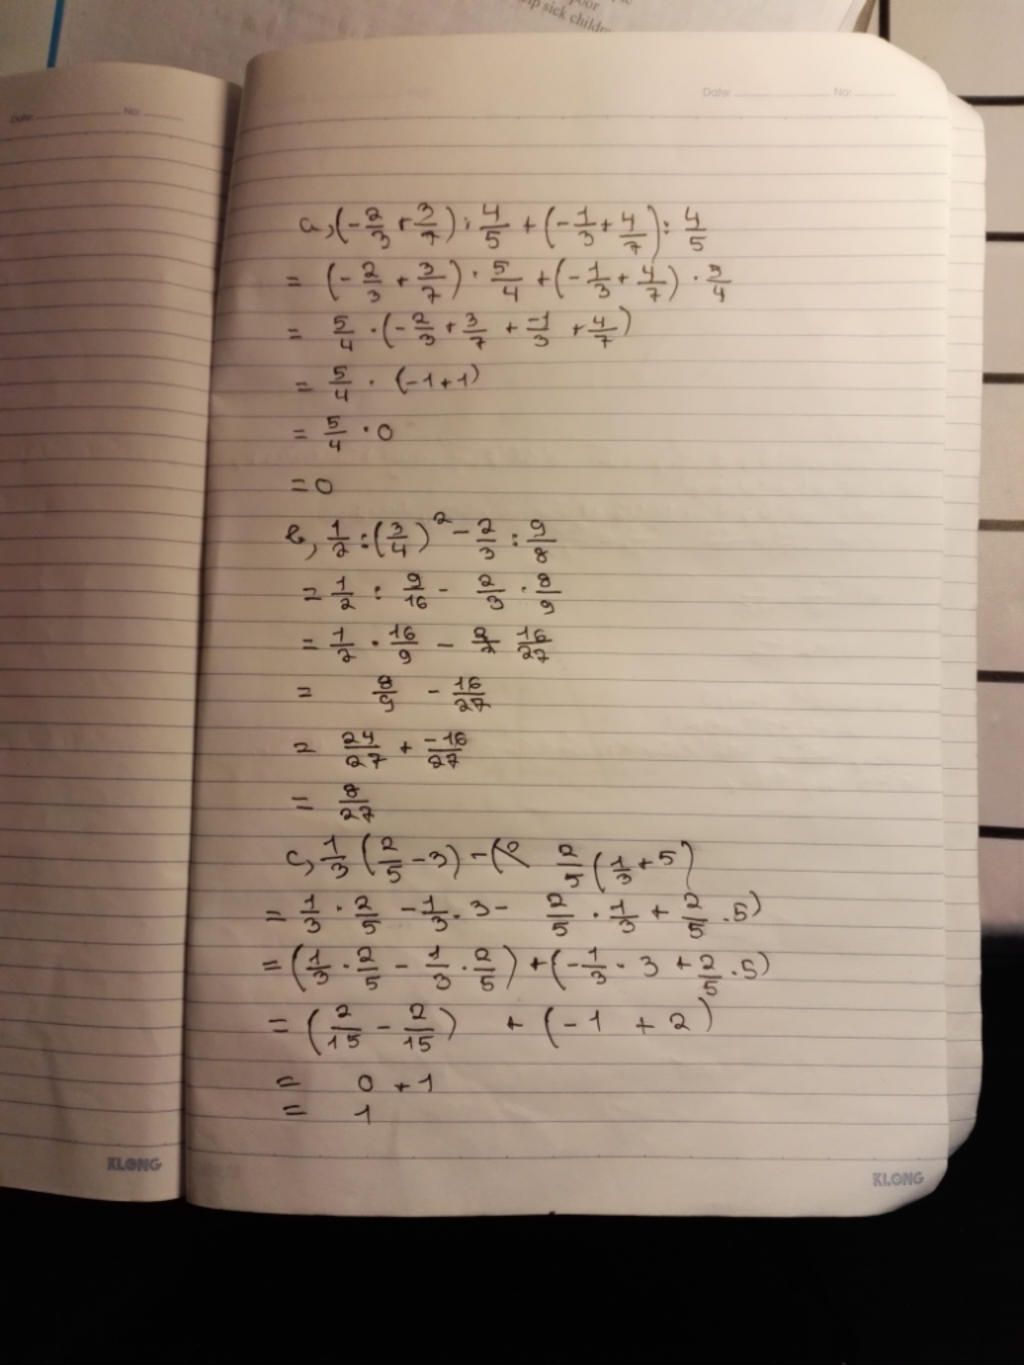 poor
sick childre
Date: No:
Date: No:
a, (-2/3 + 3/7) : 4/5 + (-1/3 + 4/7) : 4/5
= (-2/3 + 3/7) · 5/4 + (-1/3 + 4/7) · 5/4
= 5/4 · (-2/3 + 3/7 + -1/3 + 4/7)
= 5/4 · (-1+1)
= 5/4 · 0
= 0
b, 1/2 : (3/4)² - 2/3 : 9/8
= 1/2 : 9/16 - 2/3 · 8/9
= 1/2 · 16/9 - 16/27
= 8/9 - 16/27
= 24/27 + -16/27
= 8/27
c, 1/3 (2/5 - 3) - 2/5 (1/3 + 5)
= 1/3 · 2/5 - 1/3 . 3 - 2/5 · 1/3 + 2/5 . 5)
= (1/3 · 2/5 - 1/3 · 2/5) + (-1/3 · 3 + 2/5 . 5)
= (2/15 - 2/15) + (-1 + 2)
= 0 + 1
= 1
KLONG
KLONG